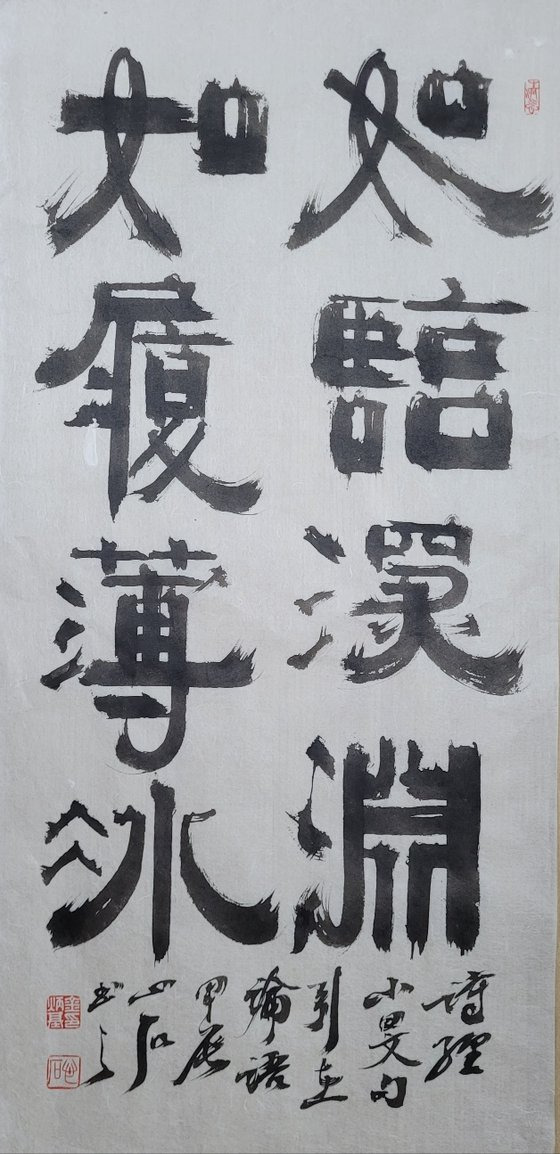 如臨深淵
如履薄冰
詩經
小旻句
引在
論語
甲辰
石
書之